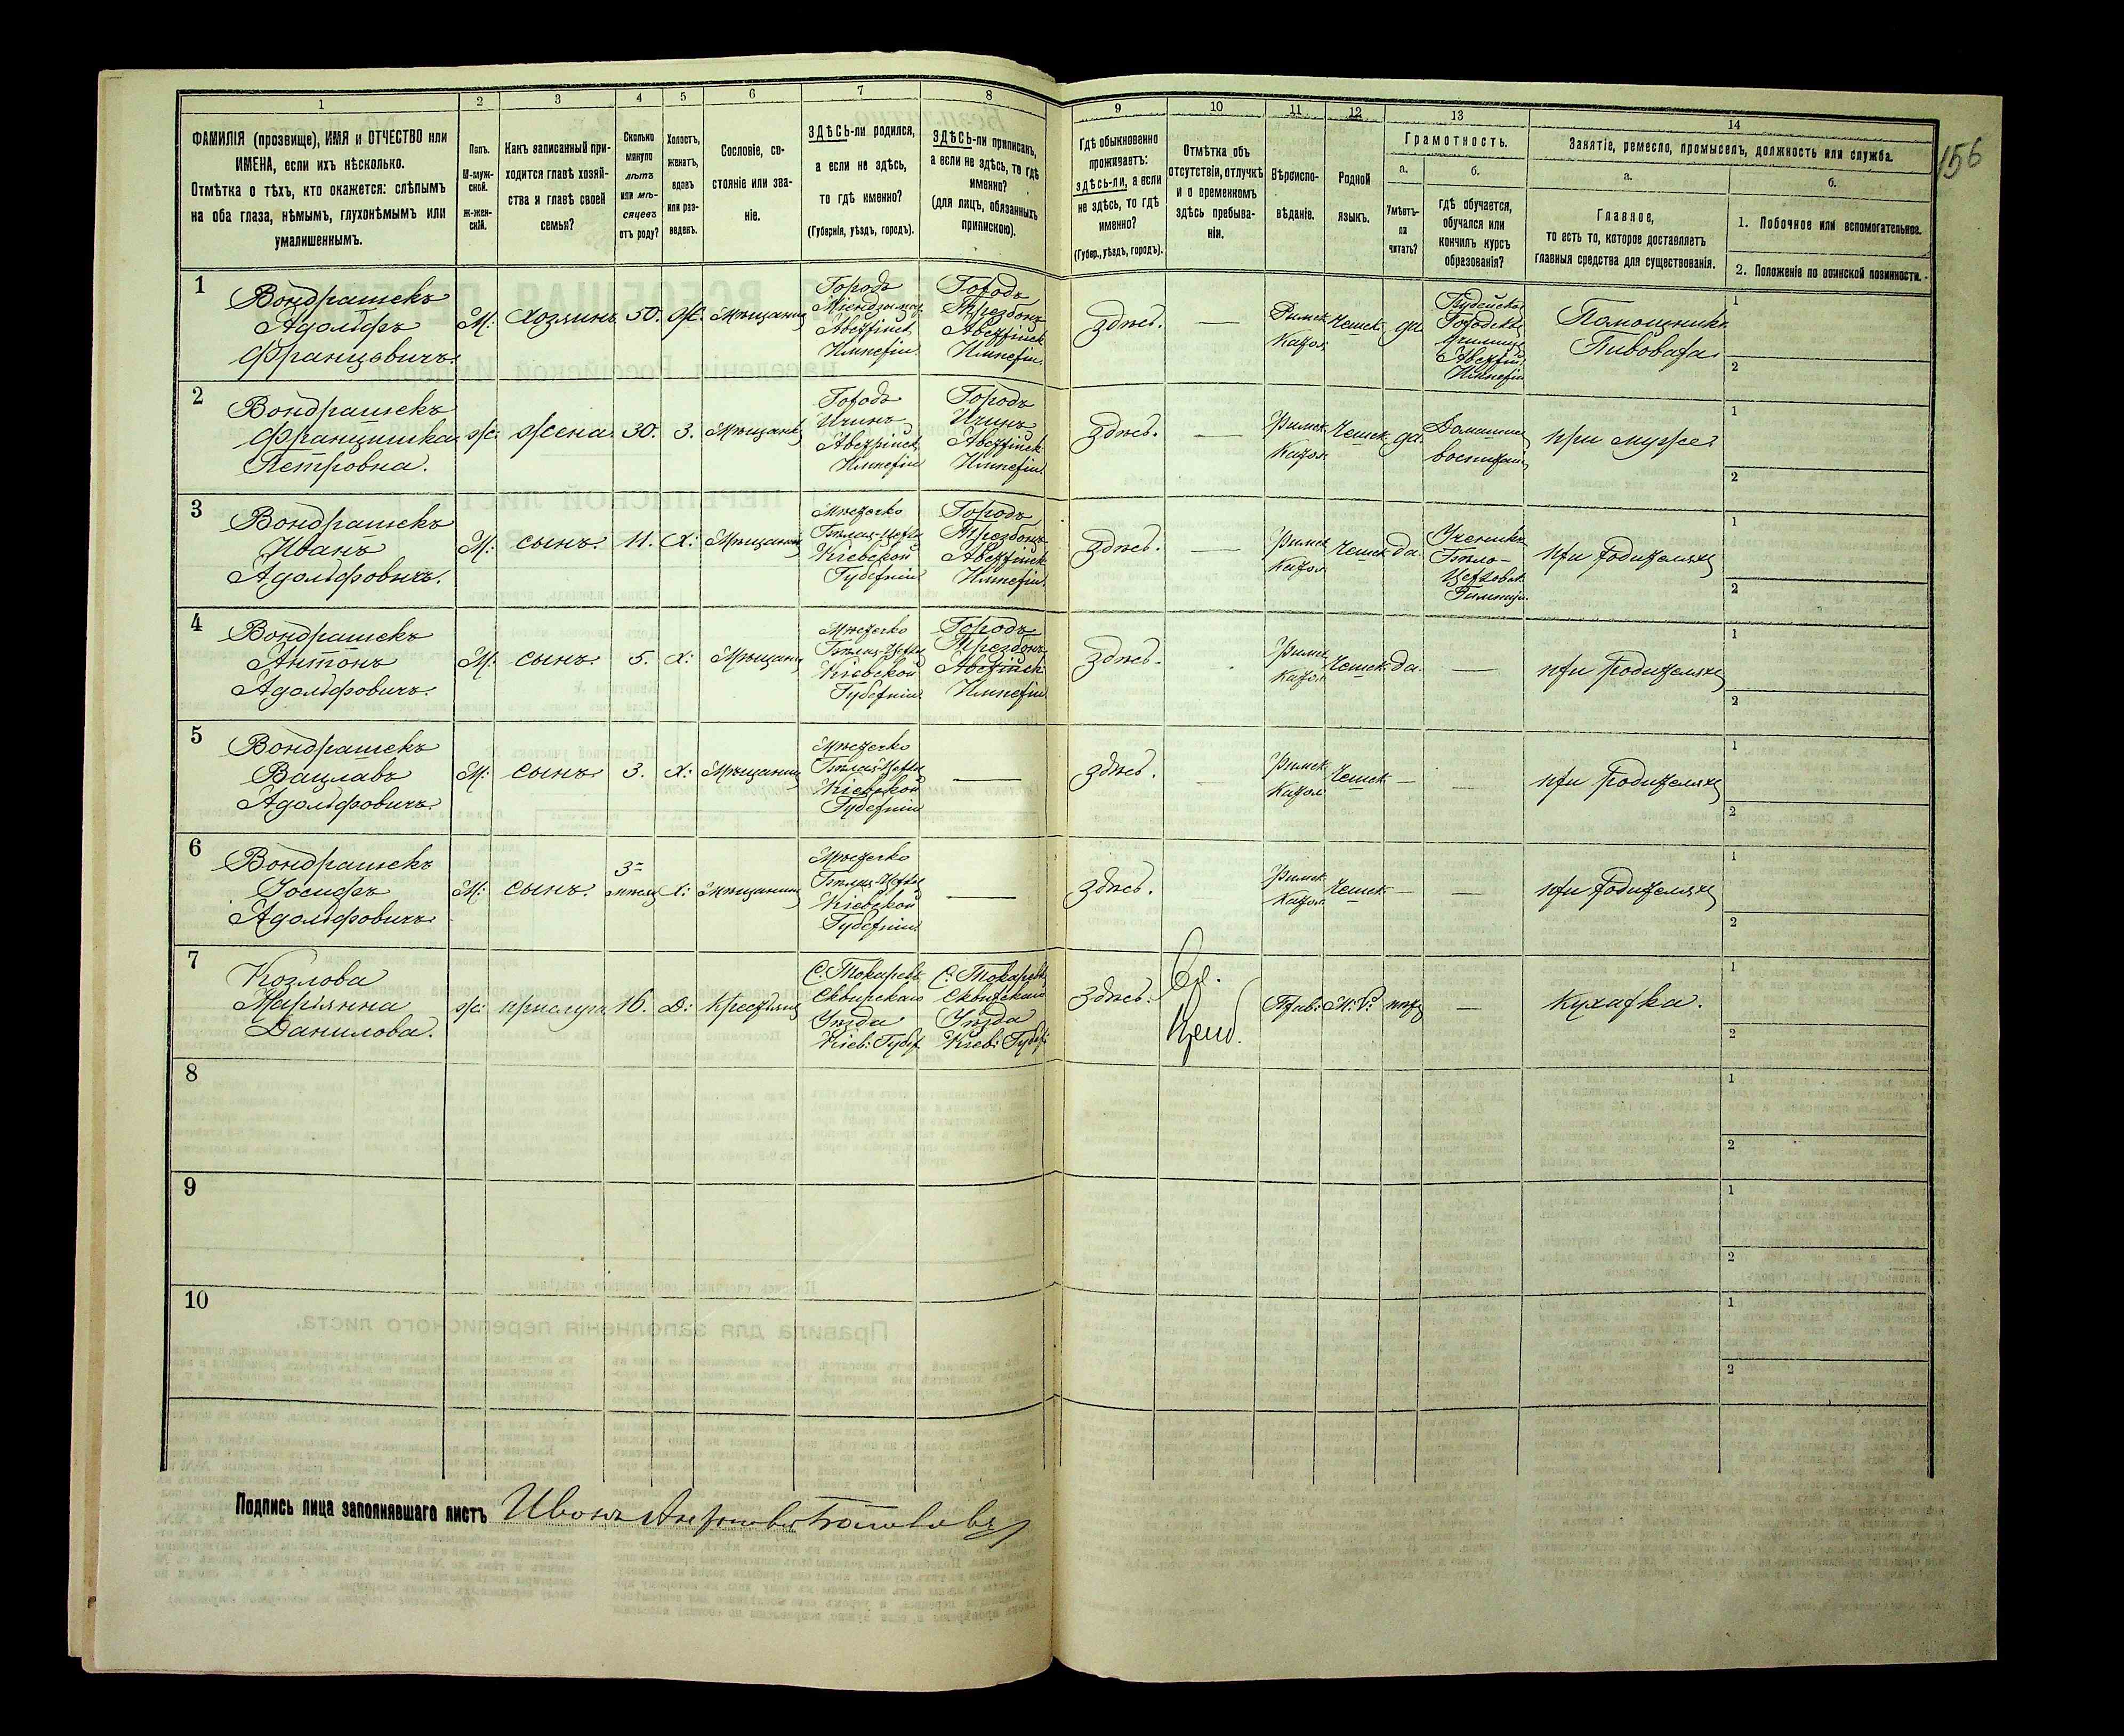 1 2 3 4 5 6 7 8 9 10 11 12 13 14
156
ФАМИЛІЯ (прозвище), ИМЯ и ОТЧЕСТВО или
ИМЕНА, если ихъ нѣсколько.
Отмѣтка о тѣхъ, кто окажется: слѣпымъ
на оба глаза, нѣмымъ, глухонѣмымъ или
умалишеннымъ.
Полъ.
М-муж-
ской.
ж-жен-
скій.
Какъ записанный при-
ходится главѣ хозяй-
ства и главѣ своей
семьи?
Сколько
минуло
лѣтъ
или мѣ-
сяцевъ
отъ роду?
Холостъ,
женатъ,
вдовъ
или раз-
веденъ.
Сословіе, со-
стояніе или зва-
ніе.
ЗДѢСЬ-ли родился,
а если не здѣсь,
то гдѣ именно?
(Губернія, уѣздъ, городъ).
ЗДѢСЬ-ли приписанъ,
а если не здѣсь, то гдѣ
именно?
(для лицъ, обязанныхъ
припискою).
Гдѣ обыкновенно
проживаетъ:
здѣсь-ли, а если
не здѣсь, то гдѣ
именно?
(Губер., уѣздъ, городъ).
Отмѣтка объ
отсутствіи, отлучкѣ
и о временномъ
здѣсь пребыва-
ніи.
Вѣроиспо-
вѣданіе.
Родной
языкъ.
Грамотность.
а.
Умѣетъ-
ли
читать?
б.
гдѣ обучается,
обучался или
кончилъ курсъ
образованія?
Занятіе, ремесло, промыселъ, должность или служба.
а.
Главное,
то есть то, которое доставляетъ
главныя средства для существованія.
б.
1. Побочное или вспомогательное.
2. Положеніе по воинской повинности.
1
Вондрашекъ
Адольфъ
Францовичъ.
М:
Хозяинъ
50.
Ж.
Мѣщанинъ
Городъ
Австрійск.
Имперіи.
Городъ
Австрійск.
Имперіи.
Здѣсь.
—
Римск.
Катол.
Чешск.
да
Городское
Училище
Австрій.
Имперіи
Помощникъ
Пивовара.
1
2
2
Вондрашекъ
Францишка
Петровна.
Ж:
Жена.
30.
З.
Мѣщанка
Городъ
Ичинъ
Австрійск.
Имперіи
Городъ
Ичинъ
Австрійск.
Имперіи
Здѣсь.
—
Римск.
Катол.
Чешск.
да.
Домашнее
воспитан.
при мужѣ.
1
2
3
Вондрашекъ
Иванъ
Адольфовичъ.
М:
сынъ.
11.
Х:
Мѣщанинъ
Мѣстечко
Бѣлая-Церковь
Кіевской
Губерніи
Городъ
Австрійск.
Имперіи.
Здѣсь.
—
Римск.
Катол.
Чешск.
да.
Ученикъ
Бѣло-
Церковск.
Гимназіи.
при родителяхъ
1
2
4
Вондрашекъ
Антонъ
Адольфовичъ.
М:
сынъ.
5.
Х:
Мѣщанинъ
Мѣстечко
Бѣлая-Церковь
Кіевской
Губерніи
Городъ
Австрійск.
Имперіи.
Здѣсь.
Римск.
Катол.
Чешск.
да.
—
при родителяхъ
1
2
5
Вондрашекъ
Вацлавъ
Адольфовичъ.
М:
сынъ.
3.
Х:
Мѣщанинъ
Мѣстечко
Бѣлая-Церковь
Кіевской
Губерніи
—
Здѣсь.
Римск.
Катол.
Чешск.
—
—
при родителяхъ
1
2
6
Вондрашекъ
Іосифъ
Адольфовичъ.
М:
сынъ.
3
мѣсяц.
Х:
Мѣщанинъ
Мѣстечко
Бѣлая-Церковь
Кіевской
Губерніи
—
Здѣсь.
Римск.
Катол.
Чешск.
—
—
при родителяхъ
1
2
7
Козлова
Маріянна
Данилова.
Ж:
прислуга.
16.
Д:
Крестьян.
С. Токаревк.
Сквирскаго
Уѣзда
Кіев: Губер
С. Токаревк.
Сквирскаго
Уѣзда
Кіев: Губер
Здѣсь.
Прав:
М: Р:
нѣтъ
—
Кухарка.
1
2
8
1
2
9
1
2
10
1
2
Подпись лица заполнявшаго листъ Иванъ